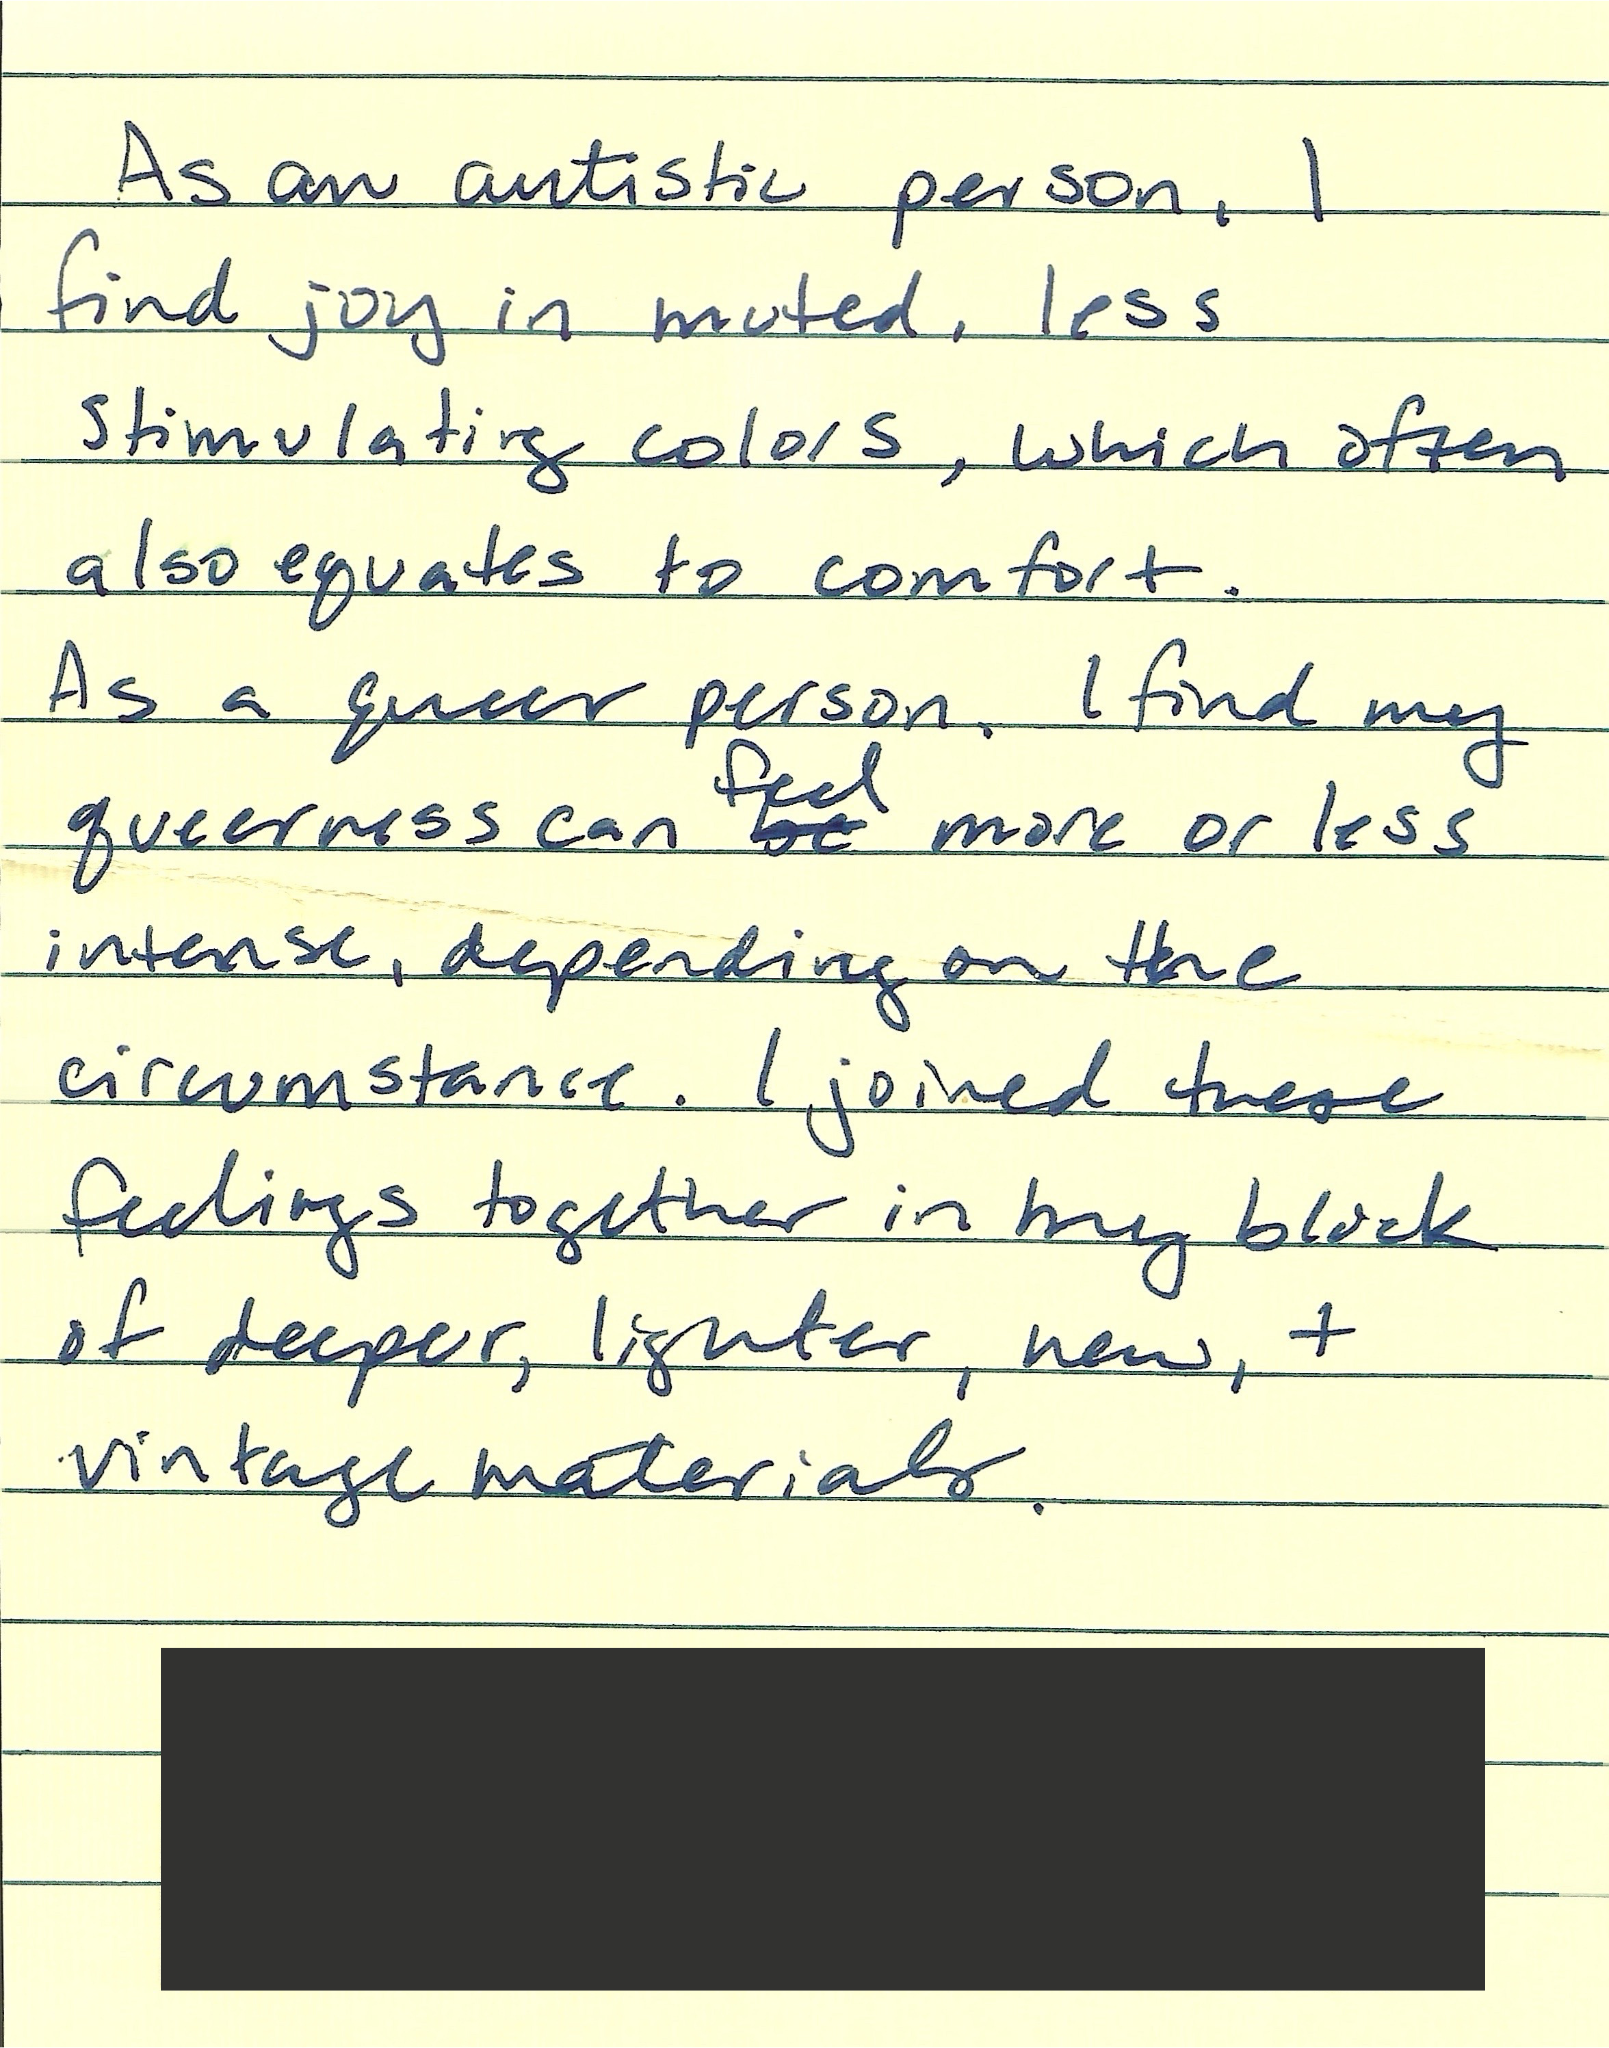 As an autistic person, I
find joy in muted, less
stimulating colors, which often
also equates to comfort.
As a queer person, I find my
queerness can feel more or less
intense, depending on the
circumstance. I joined these
feelings together in my block
of deeper, lighter, new, +
vintage materials.